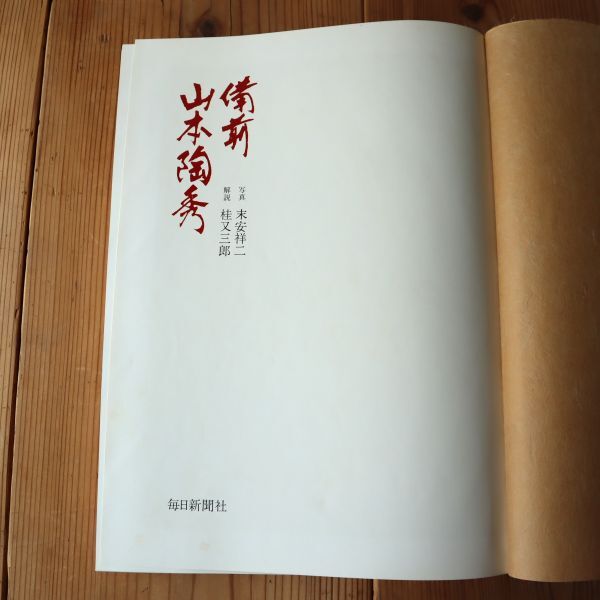 備前
山本陶秀
写真 末安祥二
解説 桂又三郎
毎日新聞社